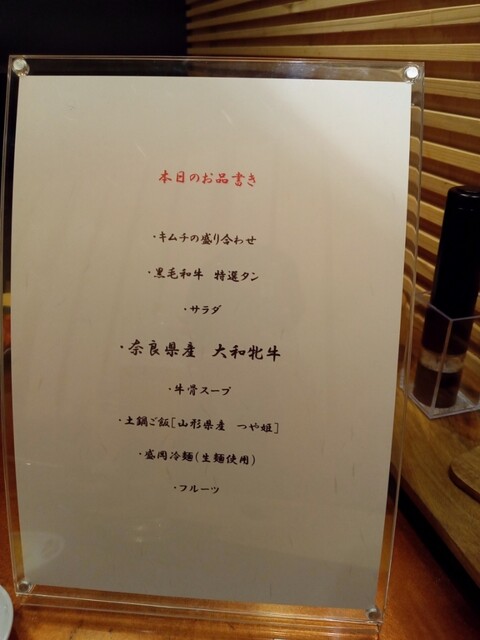 本日のお品書き
・キムチの盛り合わせ
・黒毛和牛 特選タン
・サラダ
・奈良県産 大和牝牛
・牛骨スープ
・土鍋ご飯[山形県産 つや姫]
・盛岡冷麺(生麺使用)
・フルーツ